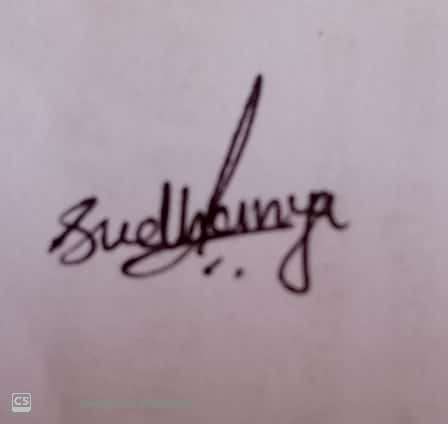 Sudhanya
CS